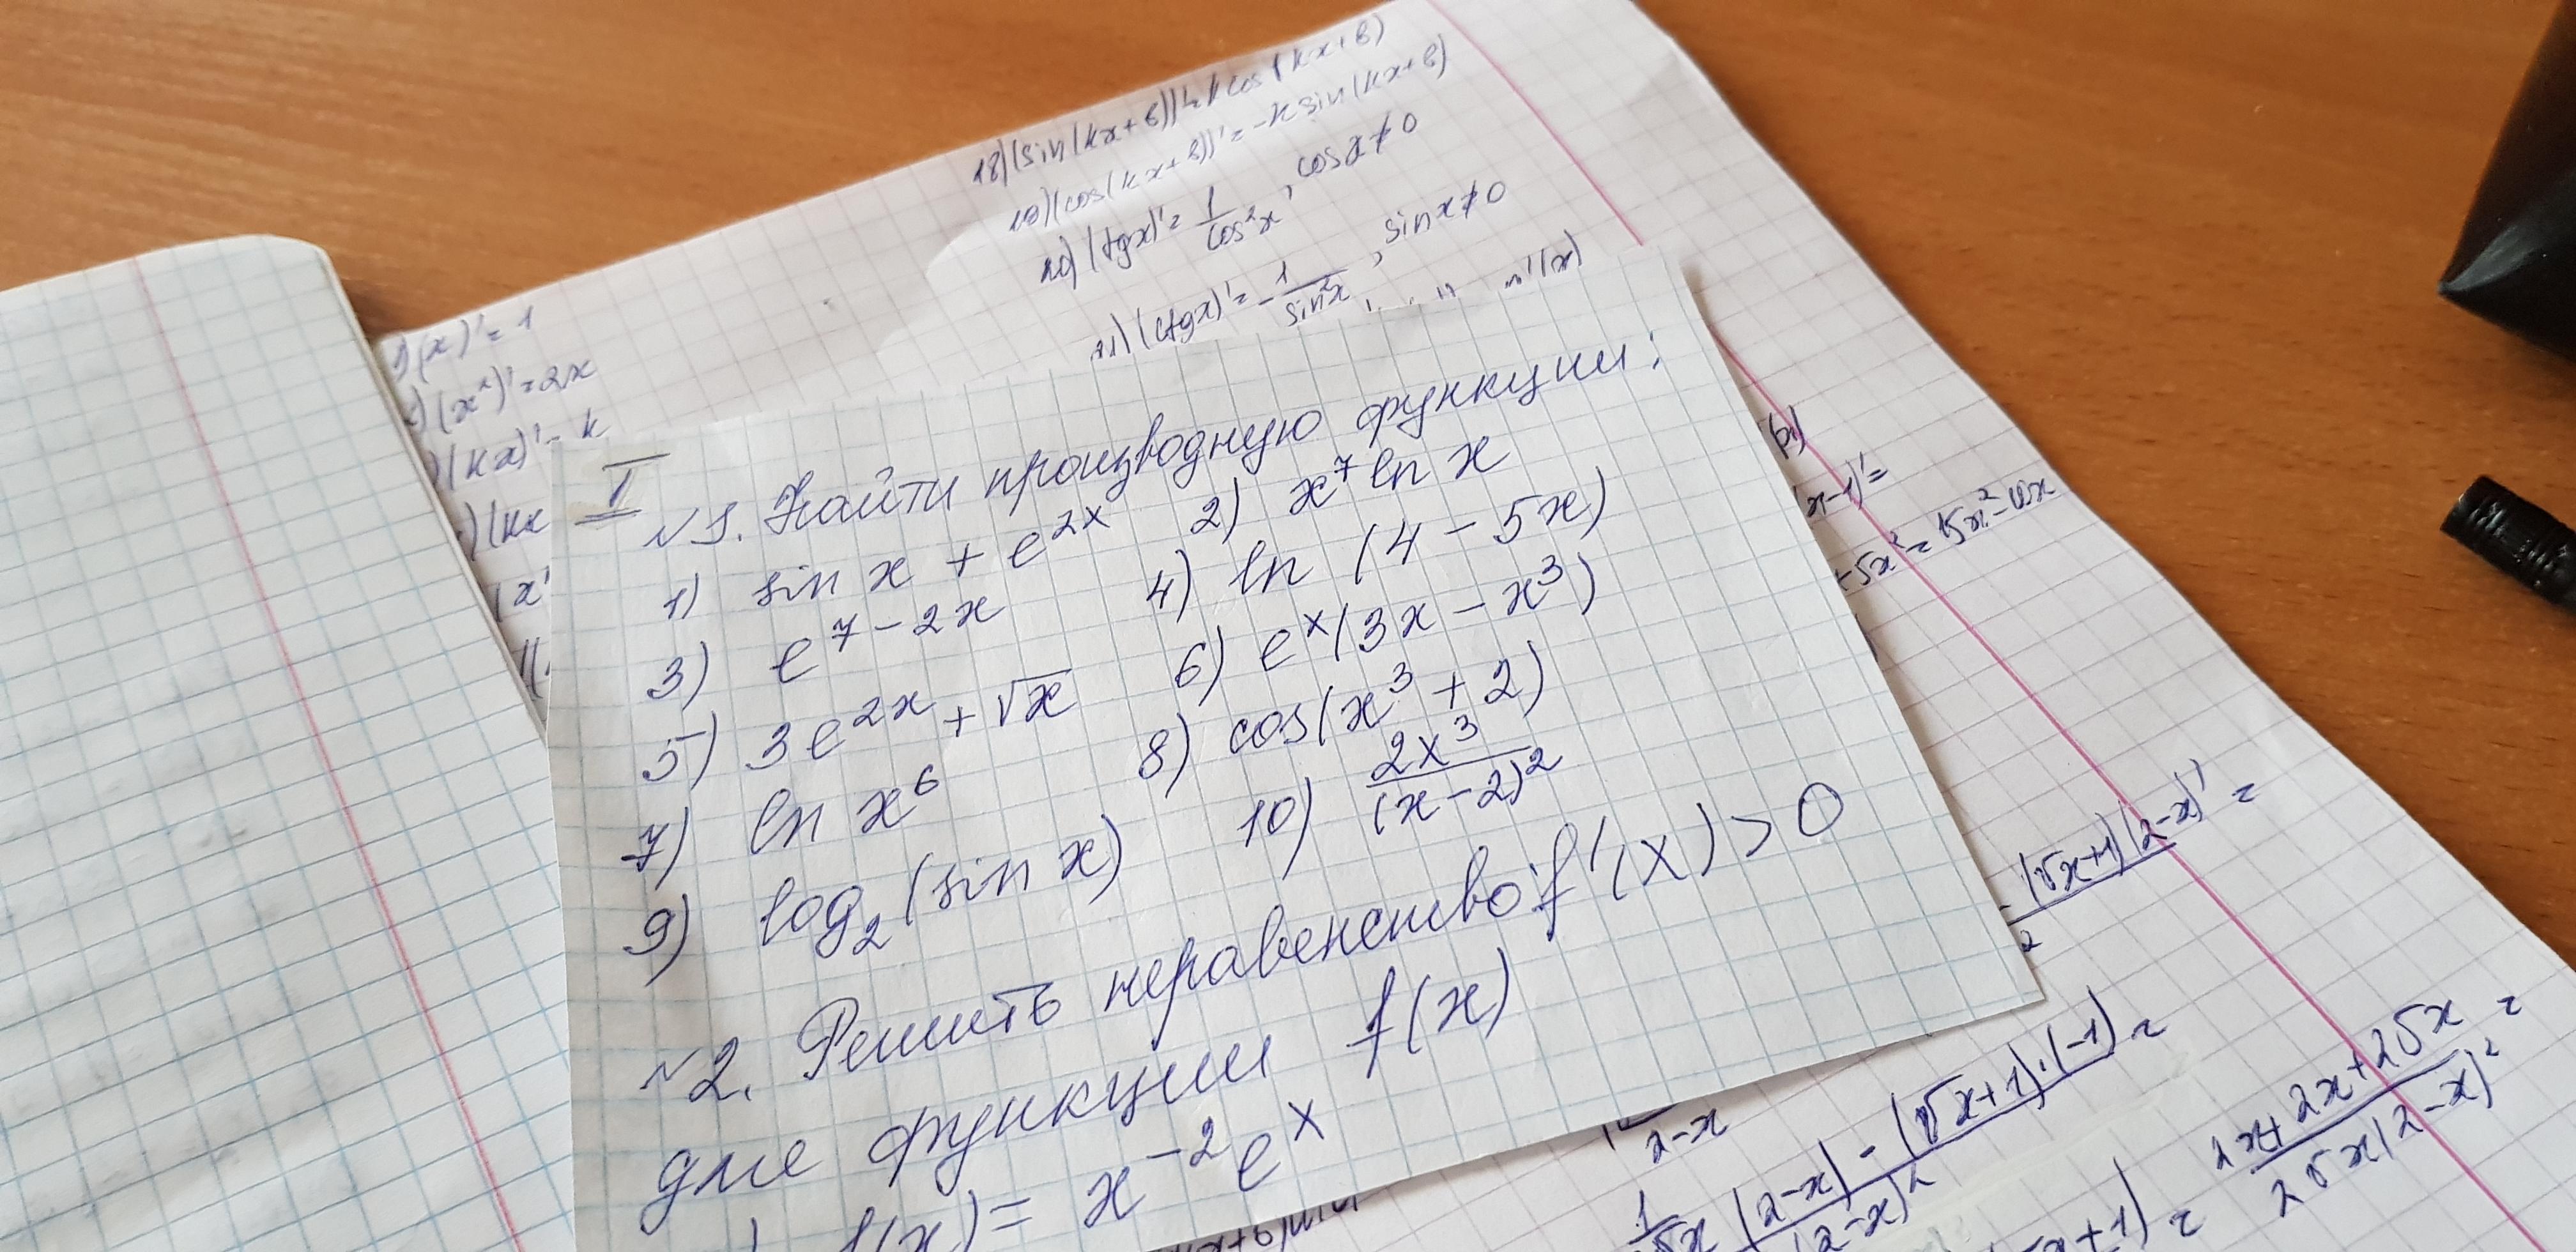 18) (sin(kx+b))'=k cos(kx+b)
19) (cos(kx+b))'=-k sin(kx+b)
20) (tgx)'= 1/cos²x, cosx≠0
21) (ctgx)'= -1/sin²x, sinx≠0
) (x)'=1
) (x²)'=2x
) (kx)'= k
) (kx
(x'
I
№1. Найти производную функции:
1) sin x + e^{2x} 2) x⁷ ln x
3) e^{7-2x} 4) ln (4-5x)
5) 3e^{2x} + √x 6) e^x(3x-x³)
7) ln x⁶ 8) cos(x³+2)
9) log₂(sin x) 10) 2x³/(x-2)²
№2. Решить неравенство f'(x)>0
для функции f(x)
f(x)= x^{-2}e^x
x-1)'=
+5x²=15x²-10x
-(√x+1)(2-x)'=
2
2-x
1/√x (2-x)-(√x+1)·(-1)=
(2-x)²
x+1) =
2x+2x+2√x/2√x(2-x)² =